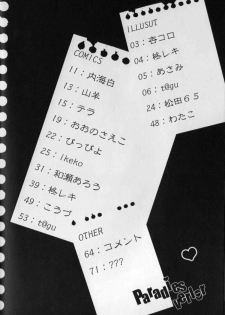 ILLUSUT
03：杏コロ
04：柊レキ
05：あさみ
06：t@gu
24：松田６５
48：わたこ
COMICS
11：内海白
13：山羊
15：テラ
19：おおのさえこ
22：ぴっぴよ
25：Ikeko
31：和瀬あろう
39：柊レキ
49：こうづ
53：t@gu
OTHER
64：コメント
71：???